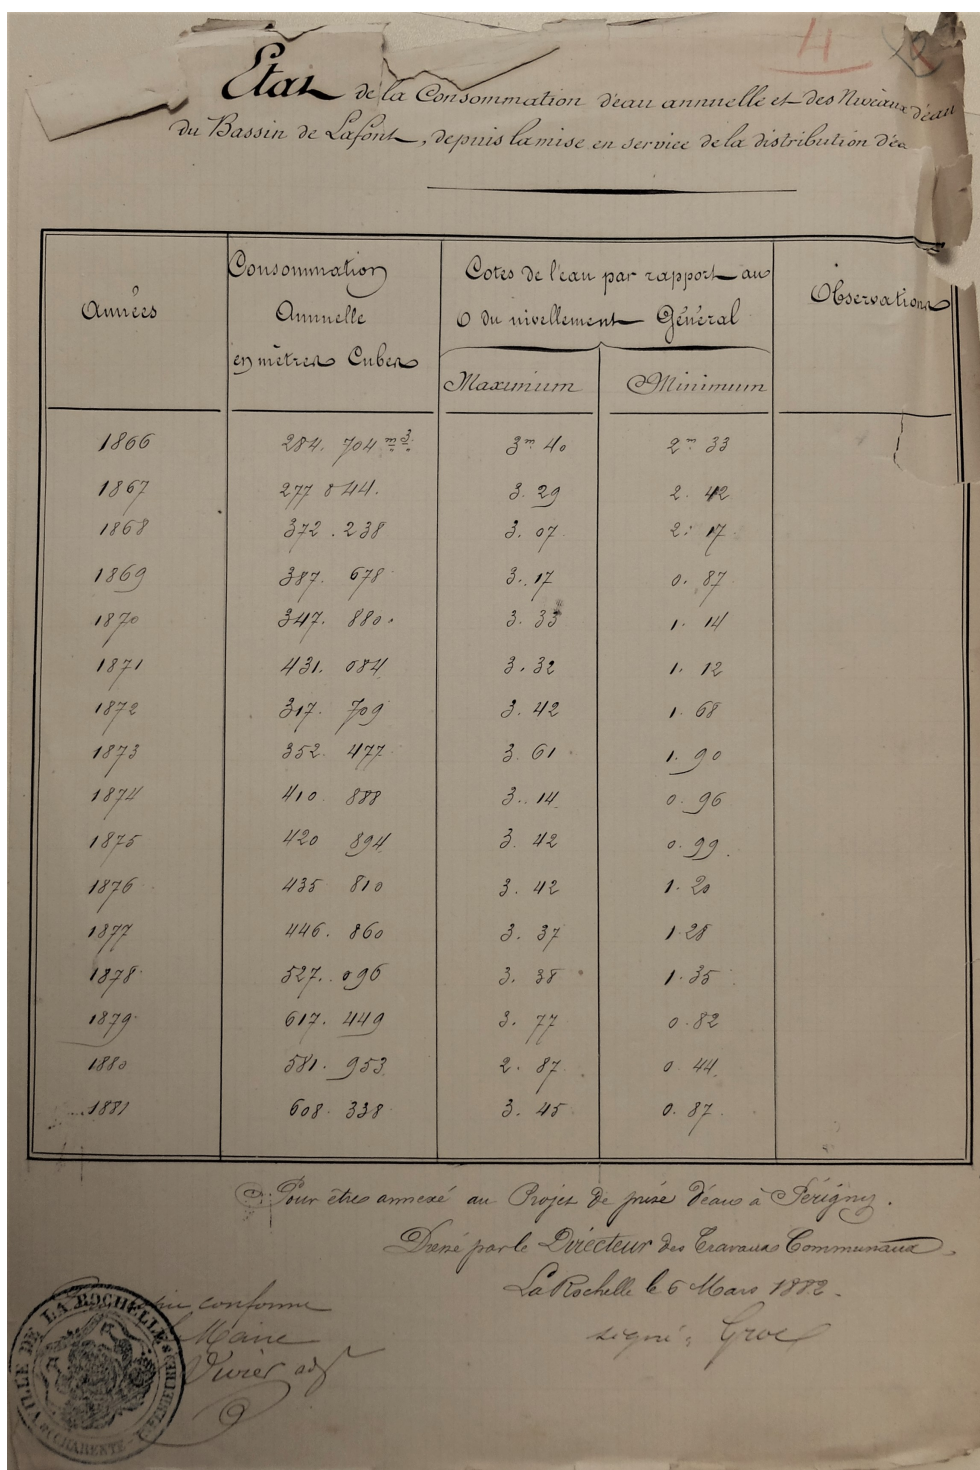 4
Etat de la Consommation d'eau annuelle et des Niveaux d'eau
du Bassin de Lafont, depuis la mise en service de la distribution
Années
Consommation
Annuelle
en mètres Cubes
Cotes de l'eau par rapport au
0 du nivellement Général
Maximum
Minimum
Observations
1866 284. 704 m3. 3m 40 2m 33
1867 277 844. 3. 29 2. 42
1868 372. 238 3. 07 2. 17
1869 387. 678 3. 17 0. 87
1870 347. 880. 3. 33 1. 14
1871 431. 084 3. 32 1. 12
1872 317. 709 3. 42 1. 68
1873 352. 477 3. 61 1. 90
1874 410. 888 3. 14 0. 96
1875 420 894 3. 42 0. 99
1876 435 810 3. 42 1. 20
1877 446. 860 3. 37 1. 28
1878 527. 096 3. 38 1. 35
1879 617. 449 3. 77 0. 82
1880 581. 953 2. 87 0. 44
1881 608. 338 3. 45 0. 87
Pour être annexé au Projet de prise d'eau à Périgny.
Dressé par le Directeur des Travaux Communaux.
La Rochelle le 6 Mars 1882.
signé: Groc
conforme
Maire
Vivier adjt
VILLE DE LA ROCHELLE
CHARENTE-INFÉRIEURE